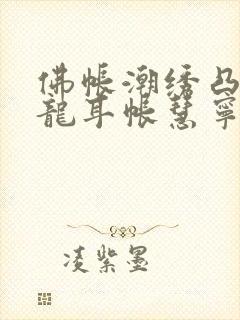 佛帐潮绣凸
龍耳帐慧寧
凌紫墨